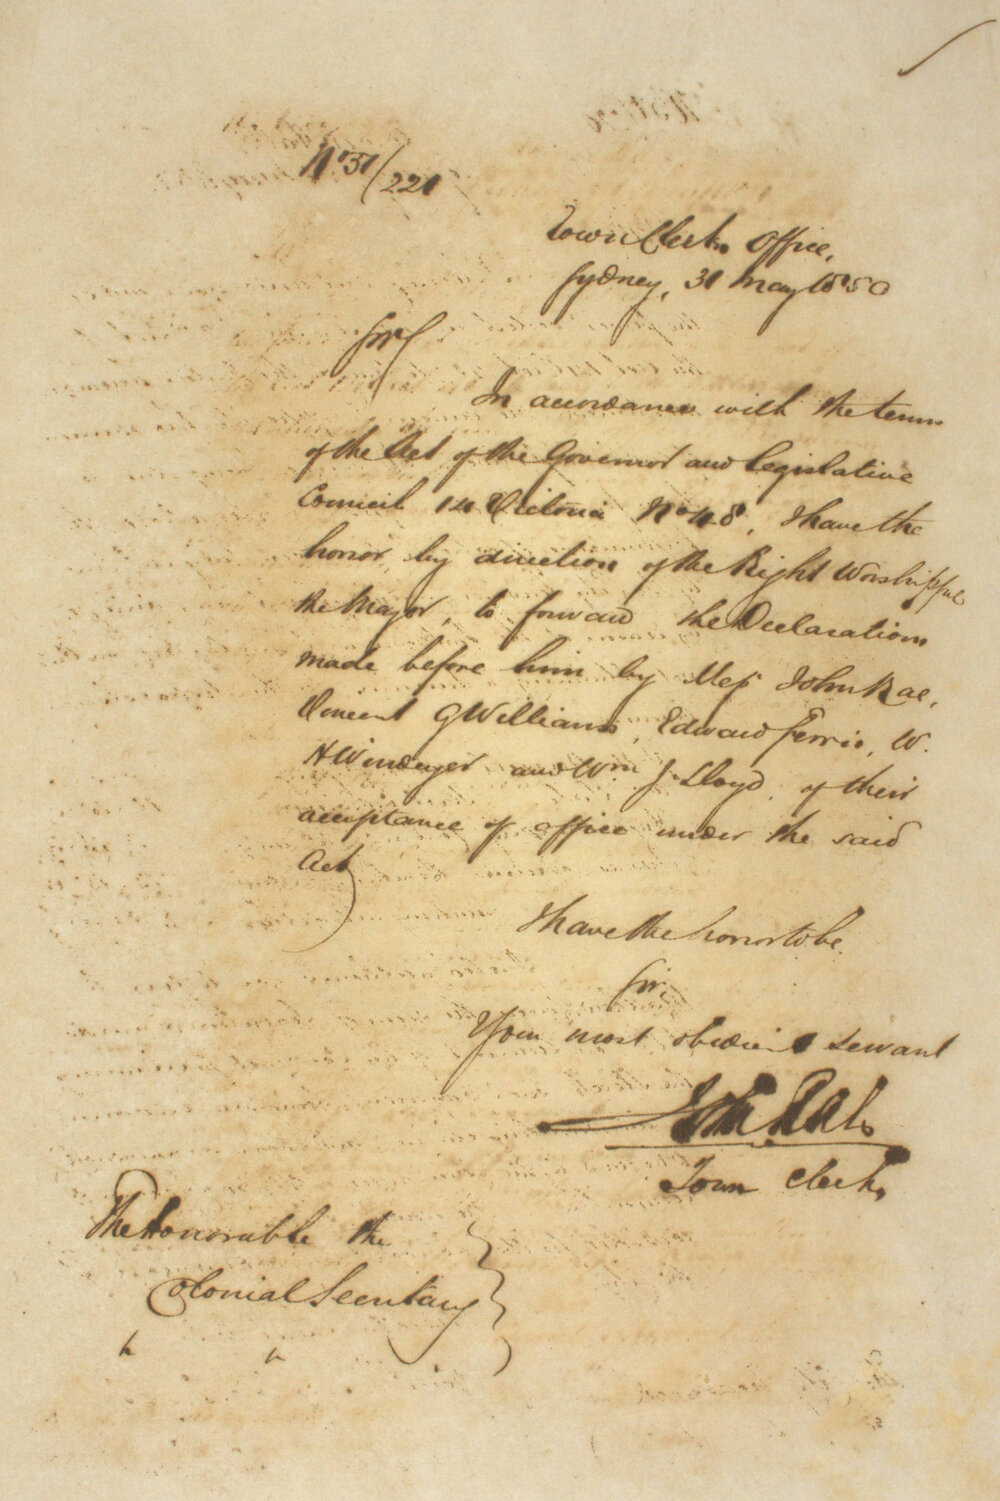 No 51/221
Town Clerks Office,
Sydney, 31 May 1850
Sir,
In accordance with the terms
of the Act of the Governor and Legislative
Council 14 Victoria No 48, I have the
honor, by direction of the Right Worshipful
the Mayor, to forward the Declarations
made before him by Mess John Rae,
G Williams, Edward Ferris, W.
H Windeyer and Wm J. Lloyd, of their
acceptance of office under the said
Act
I have the honor to be
Sir,
Your most obedient servant
John Rae
Town Clerk,
The Honorable the
Colonial Secretary
" "